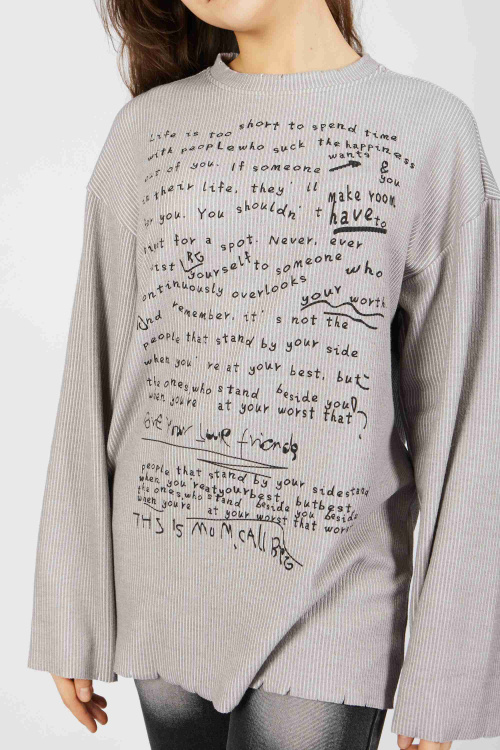 Life is too short to spend time
with people who suck the happiness
out of you. If someone wants &
you
in their life, they' ll make room
for you. You shouldn' t have to
for a spot. Never, ever
yourself to someone who
continuously overlooks
your worth
And remember, it' s not the
people that stand by your side
when you' re at your best, but
the ones, who stand beside you
when youre at your worst that ?
your love friends
people that stand by your sidestand
when you'reatyourbest, butbest
the ones,who stand beside you beside
when youre at your worst that
THIS IS MOM, CALL